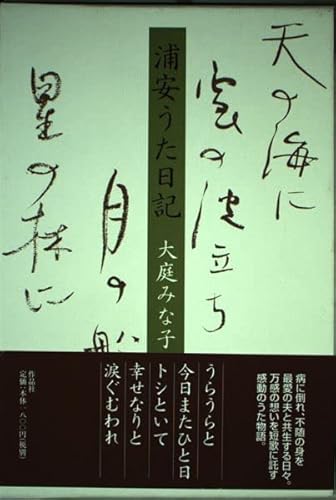 天の海に
雲の波立ち
月の船
星の林に
浦安うた日記
大庭みな子
病に倒れ、不随の身を
最愛の夫と共生する日々。
万感の想いを短歌に託す
感動のうた物語。
うらうらと
今日またひと日
トシといて
幸せなりと
涙ぐむわれ
作品社
定価・本体一八〇〇円(税別)